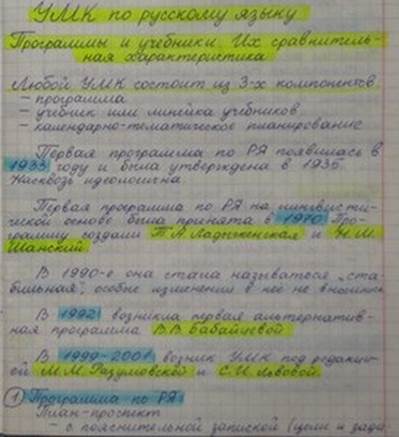 УМК по русскому языку
Программы и учебники. Их сравнитель-
ная характеристика
Любой УМК состоит из 3-х компонентов
– программа
– учебник или линейка учебников
– календарно-тематическое планирование
Первая программа по РЯ появилась в
1933 году и была утверждена в 1935.
Насквозь идеологична.
Первая программа по РЯ на лингвисти-
ческой основе была принята в 1970 Про-
грамму создали Т.А. Ладыженская и Н.М.
Шанский
В 1990-е она стала называться „ста-
бильная", особые изменения в неё не вносились
В 1992 возникла первая альтернатив-
ная программа В.В. Бабайцевой
В 1999-2001 возник УМК под редакци-
ей М.М. Разумовской и С.И. Львовой.
1 Программа по РЯ
План-проспект
– с пояснительной запиской (цели и зада-